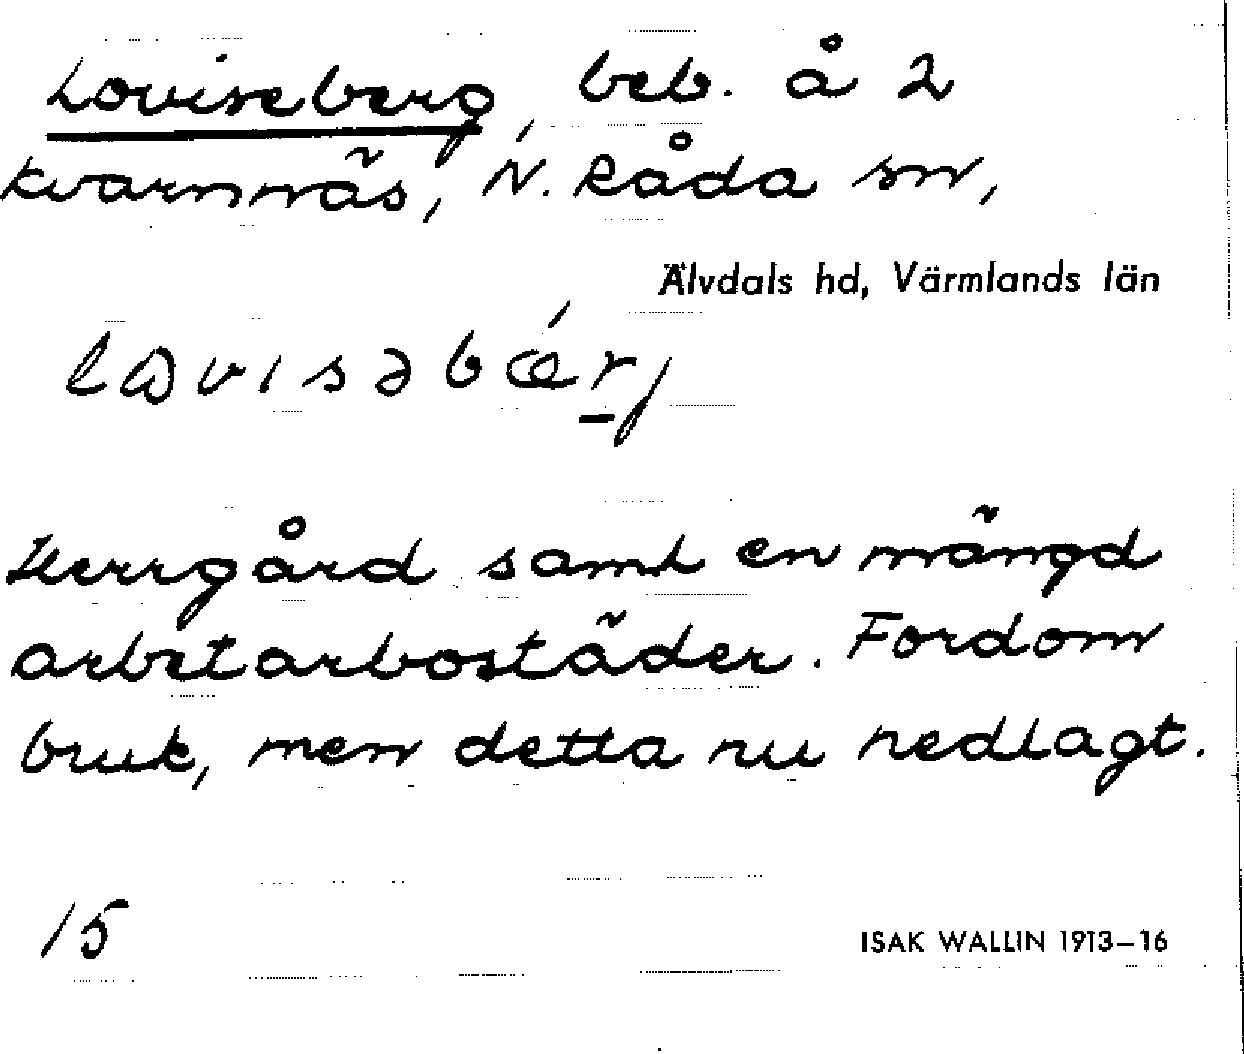 Loviseberg, beb. å 2
Kvarnnäs, N. Råda sn,
Älvdals hd, Värmlands län
Herrgård samt en mängd
arbetarbostäder. Fordom
bruk, men detta nu nedlagt.
15
ISAK WALLIN 1913–16